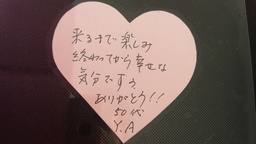 来るまで楽しみ
終わってから幸せな
気分ですう
ありがとう!!
50代
Y.A